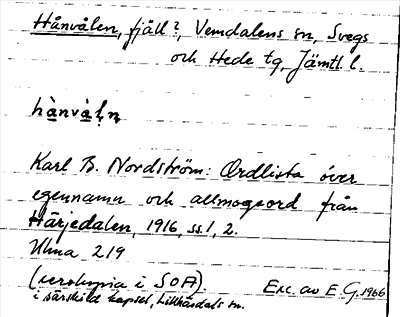 Hånvålen, fjäll?, Vemdalens sn, Svegs
och Hede tg, Jämtl. l.
hànvàl̥n̥
Karl B. Nordström: Ordlista över
egennamn och allmogeord från
Härjedalen, 1916, ss. 1, 2.
Ulma 219
(xerokopia i SOA).
i särskild kapsel, Lillhärdals sn.
Exc. av E. G. 1966